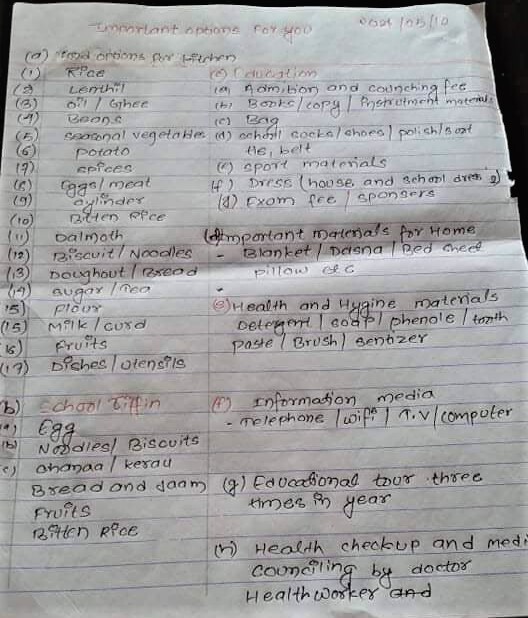 Important options For you 2021/05/10
(a) Food options for kitchen
(1) Rice
(2 Lenthil
(3) oil / Ghee
(4) Beans
(5) seasonal vegetables
(6) potato
(7) spices
(8) Eggs / meat
(9) cylinder
(10) Bitten Rice
(11) Dalmoth
(12) Biscuit / Noodles
(13) Doughout / Bread
(14) sugar / Tea
15) Flour
(15) Milk / curd
16) Fruits
(17) Dishes / Utensils
b) School Tiffin
(a) Egg
(b) Noodles / Biscuits
c) chanaa / kerau
Bread and Jaam
Fruits
Bitten Rice
(c) Education
(a) Admibion and counching fee
(b) Books / copy / Instrutment materials
(c) Bag
(d) school socks / shoes / polish / soat
tie, belt
(e) sport materials
(f) Dress (house and school dress 2)
(g) Exam fee / sponsers
(d) Important materials for Home
- Blanket / Dasna / Bed sheet
pillow etc
(e) Health and Hygine materials
Detergent / soap / phenole / tooth
paste / Brush / senitizer
(f) Information media
- Telephone / wifi / T.V / computer
(g) Educational tour three
times in year
(h) Health checkup and medi
counciling by doctor
Health worker and